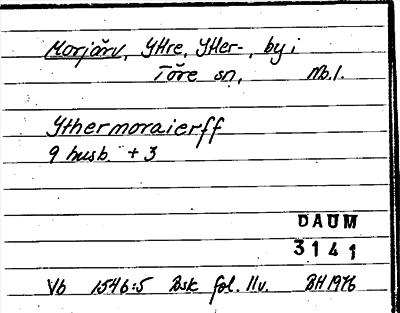 Morjärv, Yttre, Ytter-, by i
Töre sn, Nb.l.
Ythermoraierff
9 husb. + 3
DAUM
3141
Vb 1546:5 Bsk fol. 11v. BH 1976